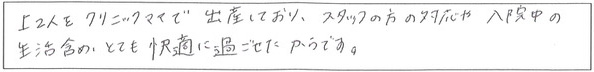 上2人を クリニックママで 出産しており、スタッフの方の対応や 入院中の
生活含め、とても快適に過ごせたからです。